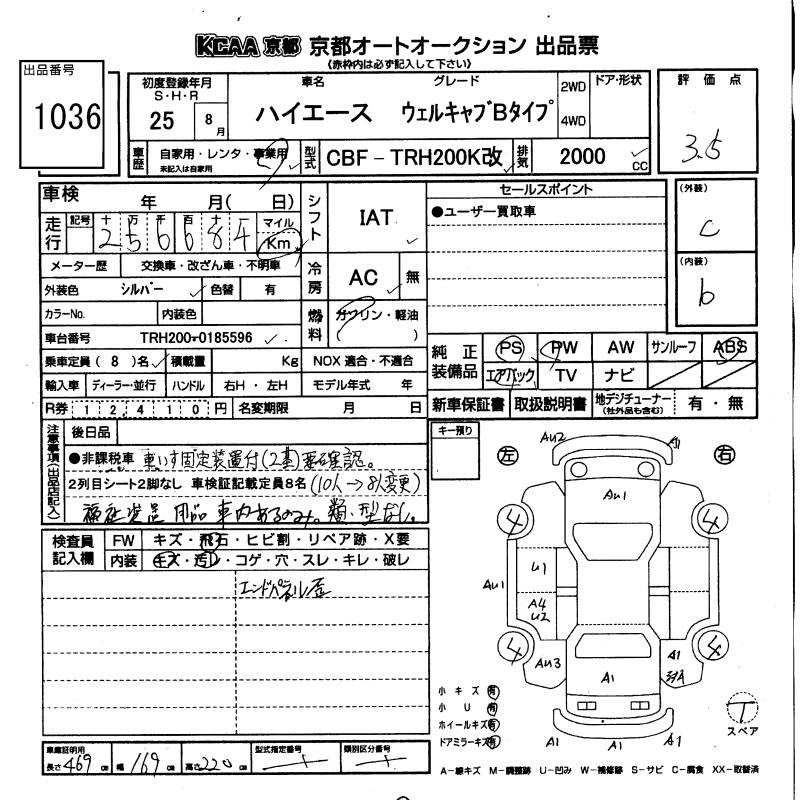 KCAA 京都 京都オートオークション 出品票
《赤枠内は必ず記入して下さい》
出品番号
1036
初度登録年月
S・H・R
25 8月
車名 グレード
ハイエース ウェルキャブBタイプ
2WD
4WD
ドア・形状
評価点
3.5
車歴 自家用・レンタ・事業用
未記入は自家用
型式 CBF-TRH200K改
排気 2000 cc
車検 年 月( 日)
シフト IAT
セールスポイント
●ユーザー買取車
(外装)
C
走行 記号 十 万 千 百 十 マイル
2 5 6 6 8 4 Km
メーター歴 交換車・改ざん車・不明車
冷房 AC 無
(内装)
b
外装色 シルバー 色替 有
カラーNo. 内装色
燃料 ガソリン・軽油
( )
車台番号 TRH200-0185596
乗車定員(8)名 積載量 Kg NOX適合・不適合
純正装備品 PS PW AW サンルーフ ABS
エアバック TV ナビ
輸入車 ディーラー・並行 ハンドル 右H・左H モデル年式 年
R券 12,410円 名変期限 月 日
新車保証書 取扱説明書 地デジチューナー
(社外品も含む) 有・無
注意事項(出品店記入)
後日品
●非課税車 車いす固定装置付(2基)要確認。
2列目シート2脚なし 車検証記載定員8名(10人→8人変更)
福祉装置 用品 車内あるのみ。類・型なし。
キー預り
検査員記入欄 FW キズ・飛石・ヒビ割・リペア跡・X要
内装 キズ・汚れ・コゲ・穴・スレ・キレ・破レ
エンドパネル歪
左 右
AU2 A1
AU1
4 4
U1
AU1
A4
U2
4 4
AU3 A1 A1
A1 A1 A1
小キズ 有
小U 有
ホイールキズ 有
ドアミラーキズ 有
T
スペア
車庫証明用
長さ 469 cm 幅 169 cm 高さ 220 cm
型式指定番号
類別区分番号
A-線キズ M-調整跡 U-凹み W-補修跡 S-サビ C-腐食 XX-取替済